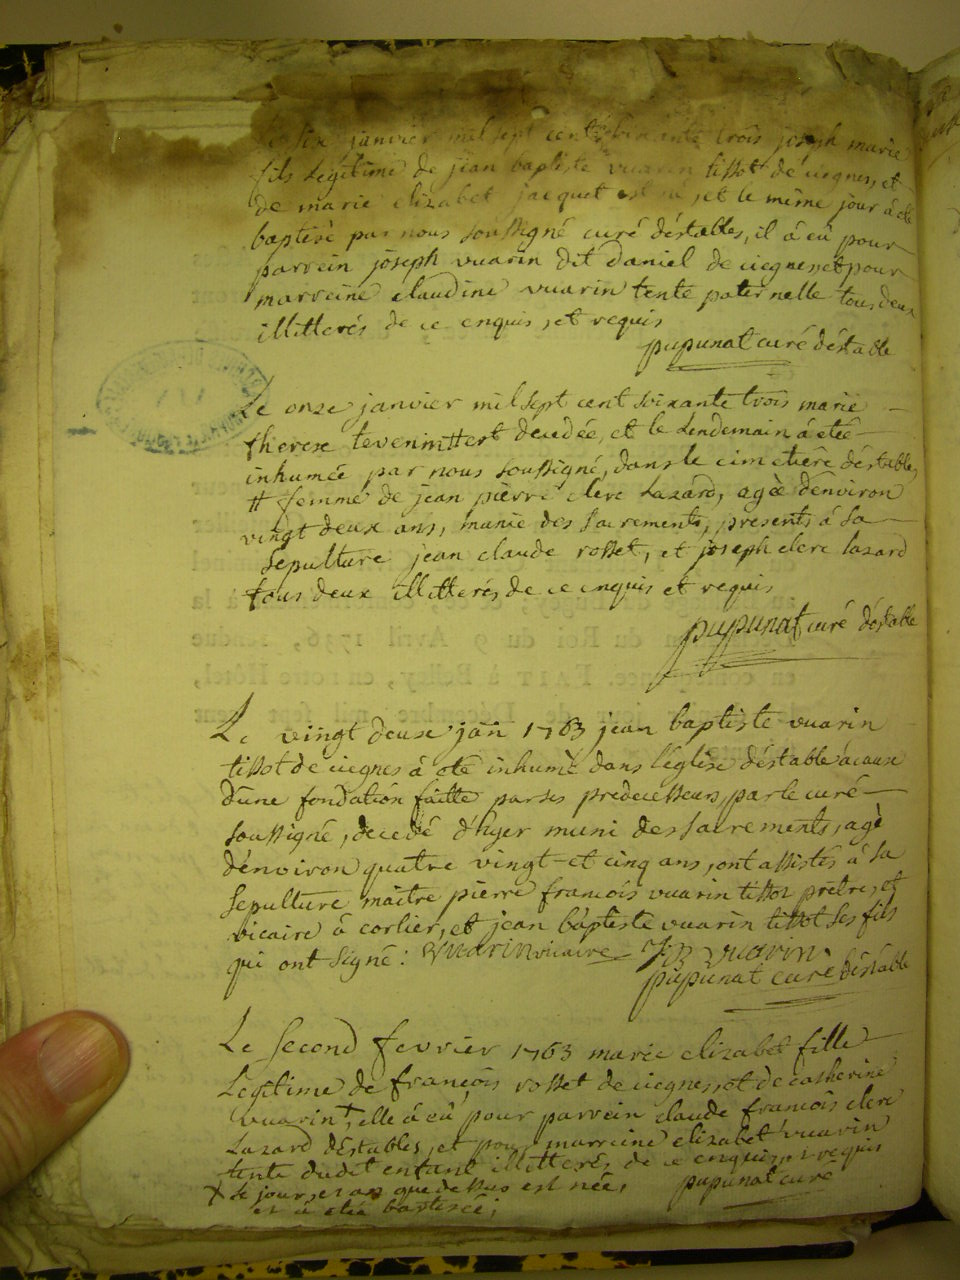 Le six janvier mil sept cent soixante trois joseph marie
fils légitime de jean baptiste vuarin tissot de ciegnes, et
de marie elizabet jacquet est né, et le même jour à eté
baptisé par nous soussigné curé déstables, il à eû pour
parrein joseph vuarin dit daniel de ciegnes, et pour
marreine claudine vuarin tente paternelle tous deux
illitterés de ce enquis, et requis
pupunat curé déstable
Le onze janvier mil sept cent soixante trois marie
therese # est decedée, et le Lendemain à eté
inhumée par nous soussigné, dans le cimetiere déstable,
# femme de jean pierre clerc Lazard, agèe denviron
vingt deux ans, munie des sacrements, presents à sa
sepulture jean claude rosset, et joseph clerc lazard
tous deux illitterés de ce enquis et requis
pupunat curé déstable
Le vingt deux janv 1763 jean baptiste vuarin
tissot de ciegnes à eté inhumé dans léglise déstable àcause
dune fondation faitte par ses predecesseurs, par le curé
soussigné, decedé d'hyer muni des sacrements, agè
dénviron quatre vingt et cinq ans, ont assistés à sa
sepulture maitre pierre francois vuarin tissot prêtre, et
vicaire à corlier, et jean baptiste vuarin tissot ses fils
qui ont signé : Vuarin vicaire JB vuarin
pupunat curé déstable
Le second fevrier 1763 marie elizabet fille
Legitime de françois rosset de ciegnes, et de catherine
vuarin, + elle à eû pour parrein claude francois clerc
Lazard déstables, et pour marreine elizabet vuarin
tente dudit enfant illitterés de ce enquis, et requis
+ le jour, et an que dessus est née, pupunat curé
et à eté baptisée,